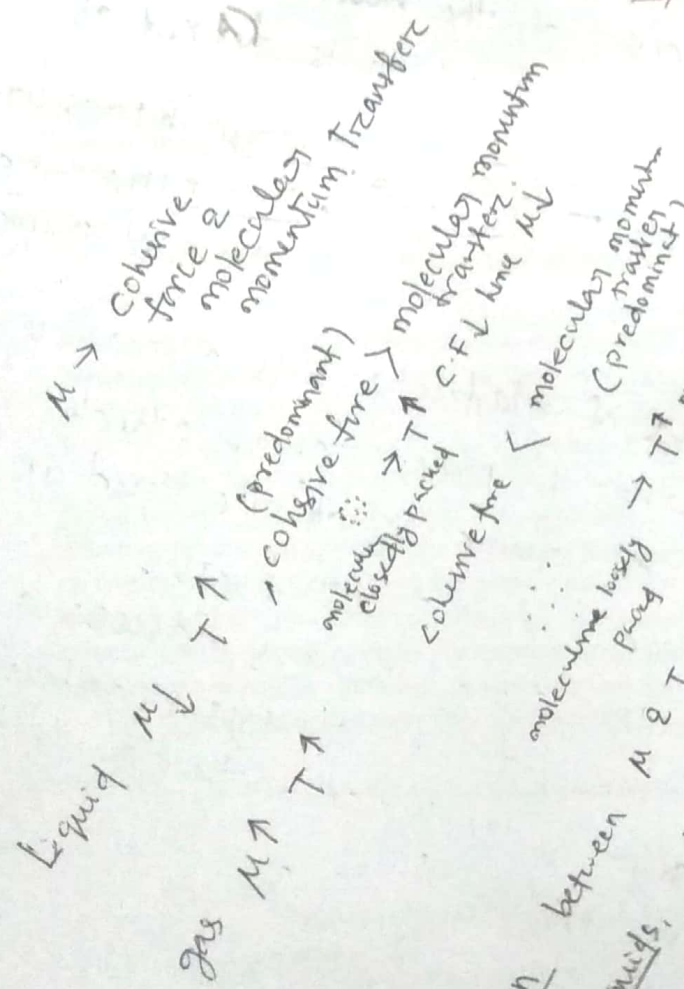 μ → cohesive
force &
molecular
momentum transfere
Liquid μ↓ T↑
(predominant)
cohesive force > molecular momentum
transfer.
molecules
closedly packed → T↑ C.F↓ hence μ↓
gas μ↑ T↑
cohesive force < molecular momentum
trasfer
(predominat)
molecules loosely
paced → T↑
between μ & T